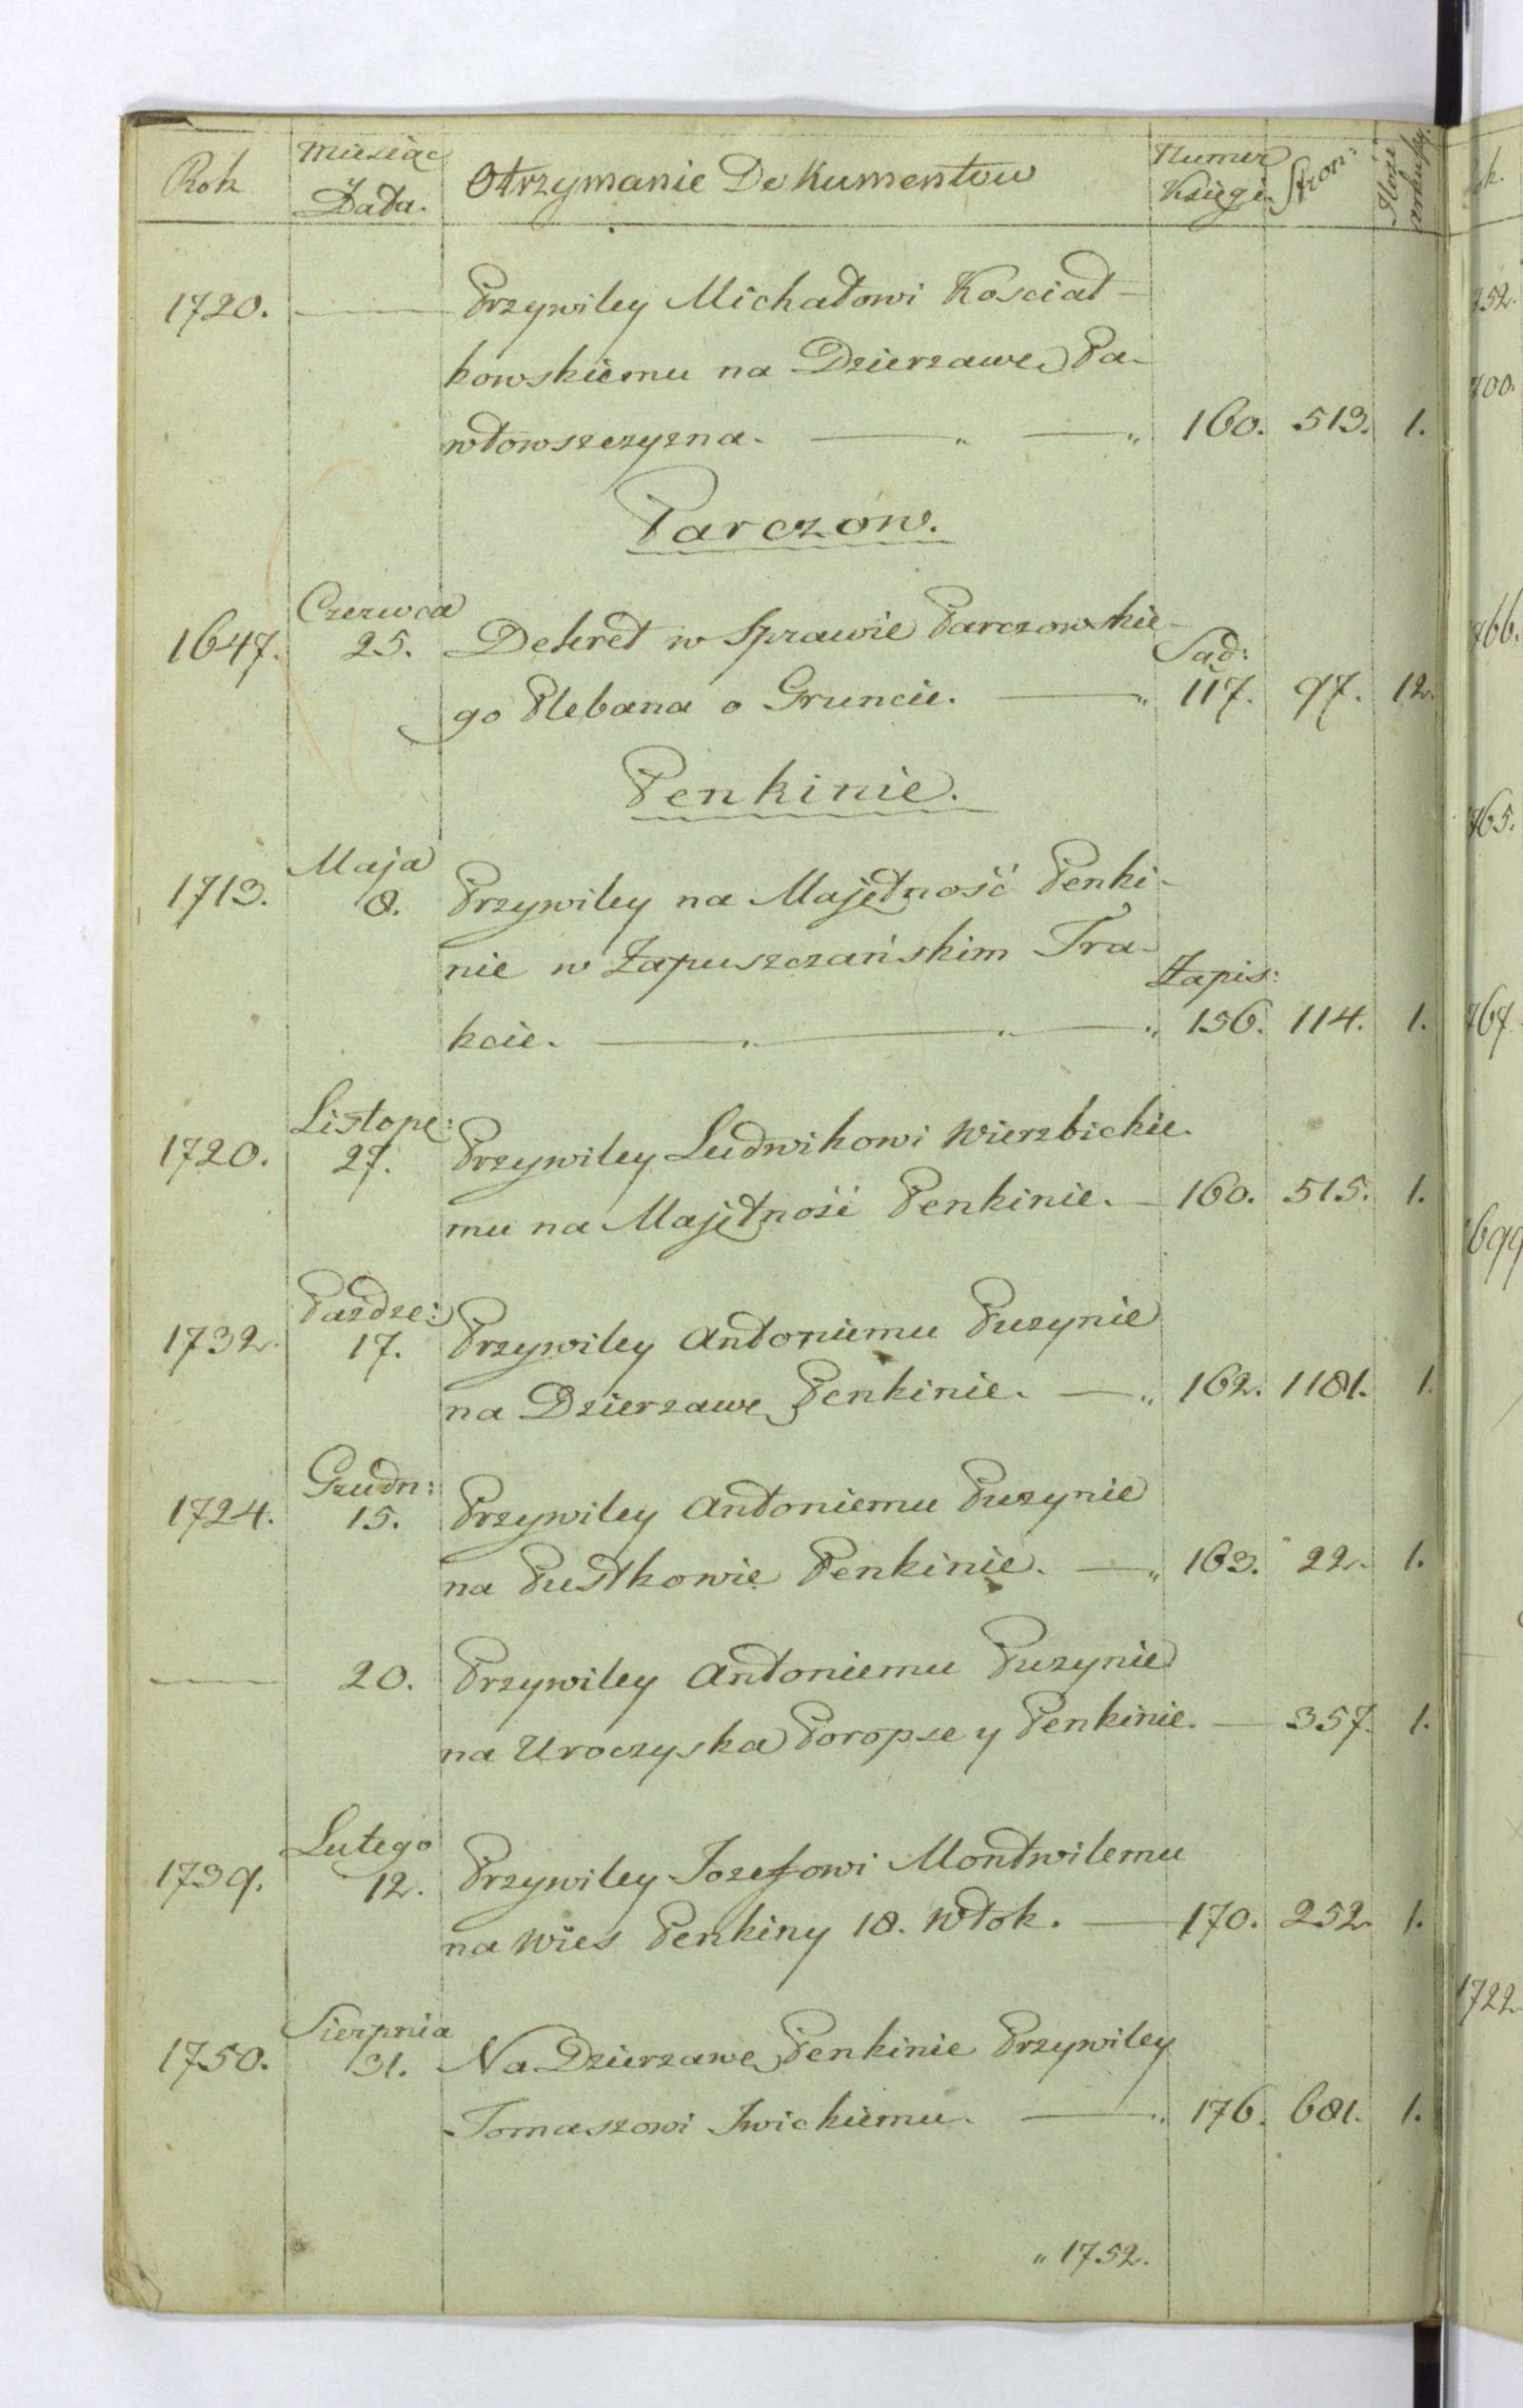 Rok Miesiąc Data. Otrzymanie Dokumentow Numer Księgi Stron: Ilość arkuszy.
1720. — Przywiley Michałowi Kosciał-
kowskiemu na Dzierzawę Pa-
włowszczyzna. — „ — „ 160. 513. 1.
Parczów.
Czerwca
1647. 25. Dekret w Sprawie Parczowskie-
Sąd:
go Plebana o Gruncie. — „ 117. 97. 12.
Penkinie.
Maja
1713. 8. Przywiley na Majętność Penki-
nie w Zapuszczańskim Tra-
Zapis:
kcie. — „ — „ — „ 156. 114. 1.
Listope:
1720. 27. Przywiley Ludwikowi Wierzbickie-
mu na Majętność Penkinie. — 160. 515. 1.
Pazdze:
1732. 17. Przywiley Antoniemu Puzynie
na Dzierzawę Penkinie. — „ 162. 1181. 1.
Grudn:
1724. 15. Przywiley Antoniemu Puzynie
na Pustkowie Penkinie. — „ 163. 22. 1.
— 20. Przywiley Antoniemu Puzynie
na Uroczyska Poropse y Penkinie. — 357. 1.
Lutego
1739. 12. Przywiley Jozefowi Montwilemu
na Wies Penkiny 18. Włok. — 170. 252. 1.
Sierpnia
1750. 31. Na Dzierzawę Penkinie Przywiley
Tomaszowi Iwickiemu. — „ 176. 681. 1.
„ 1752.